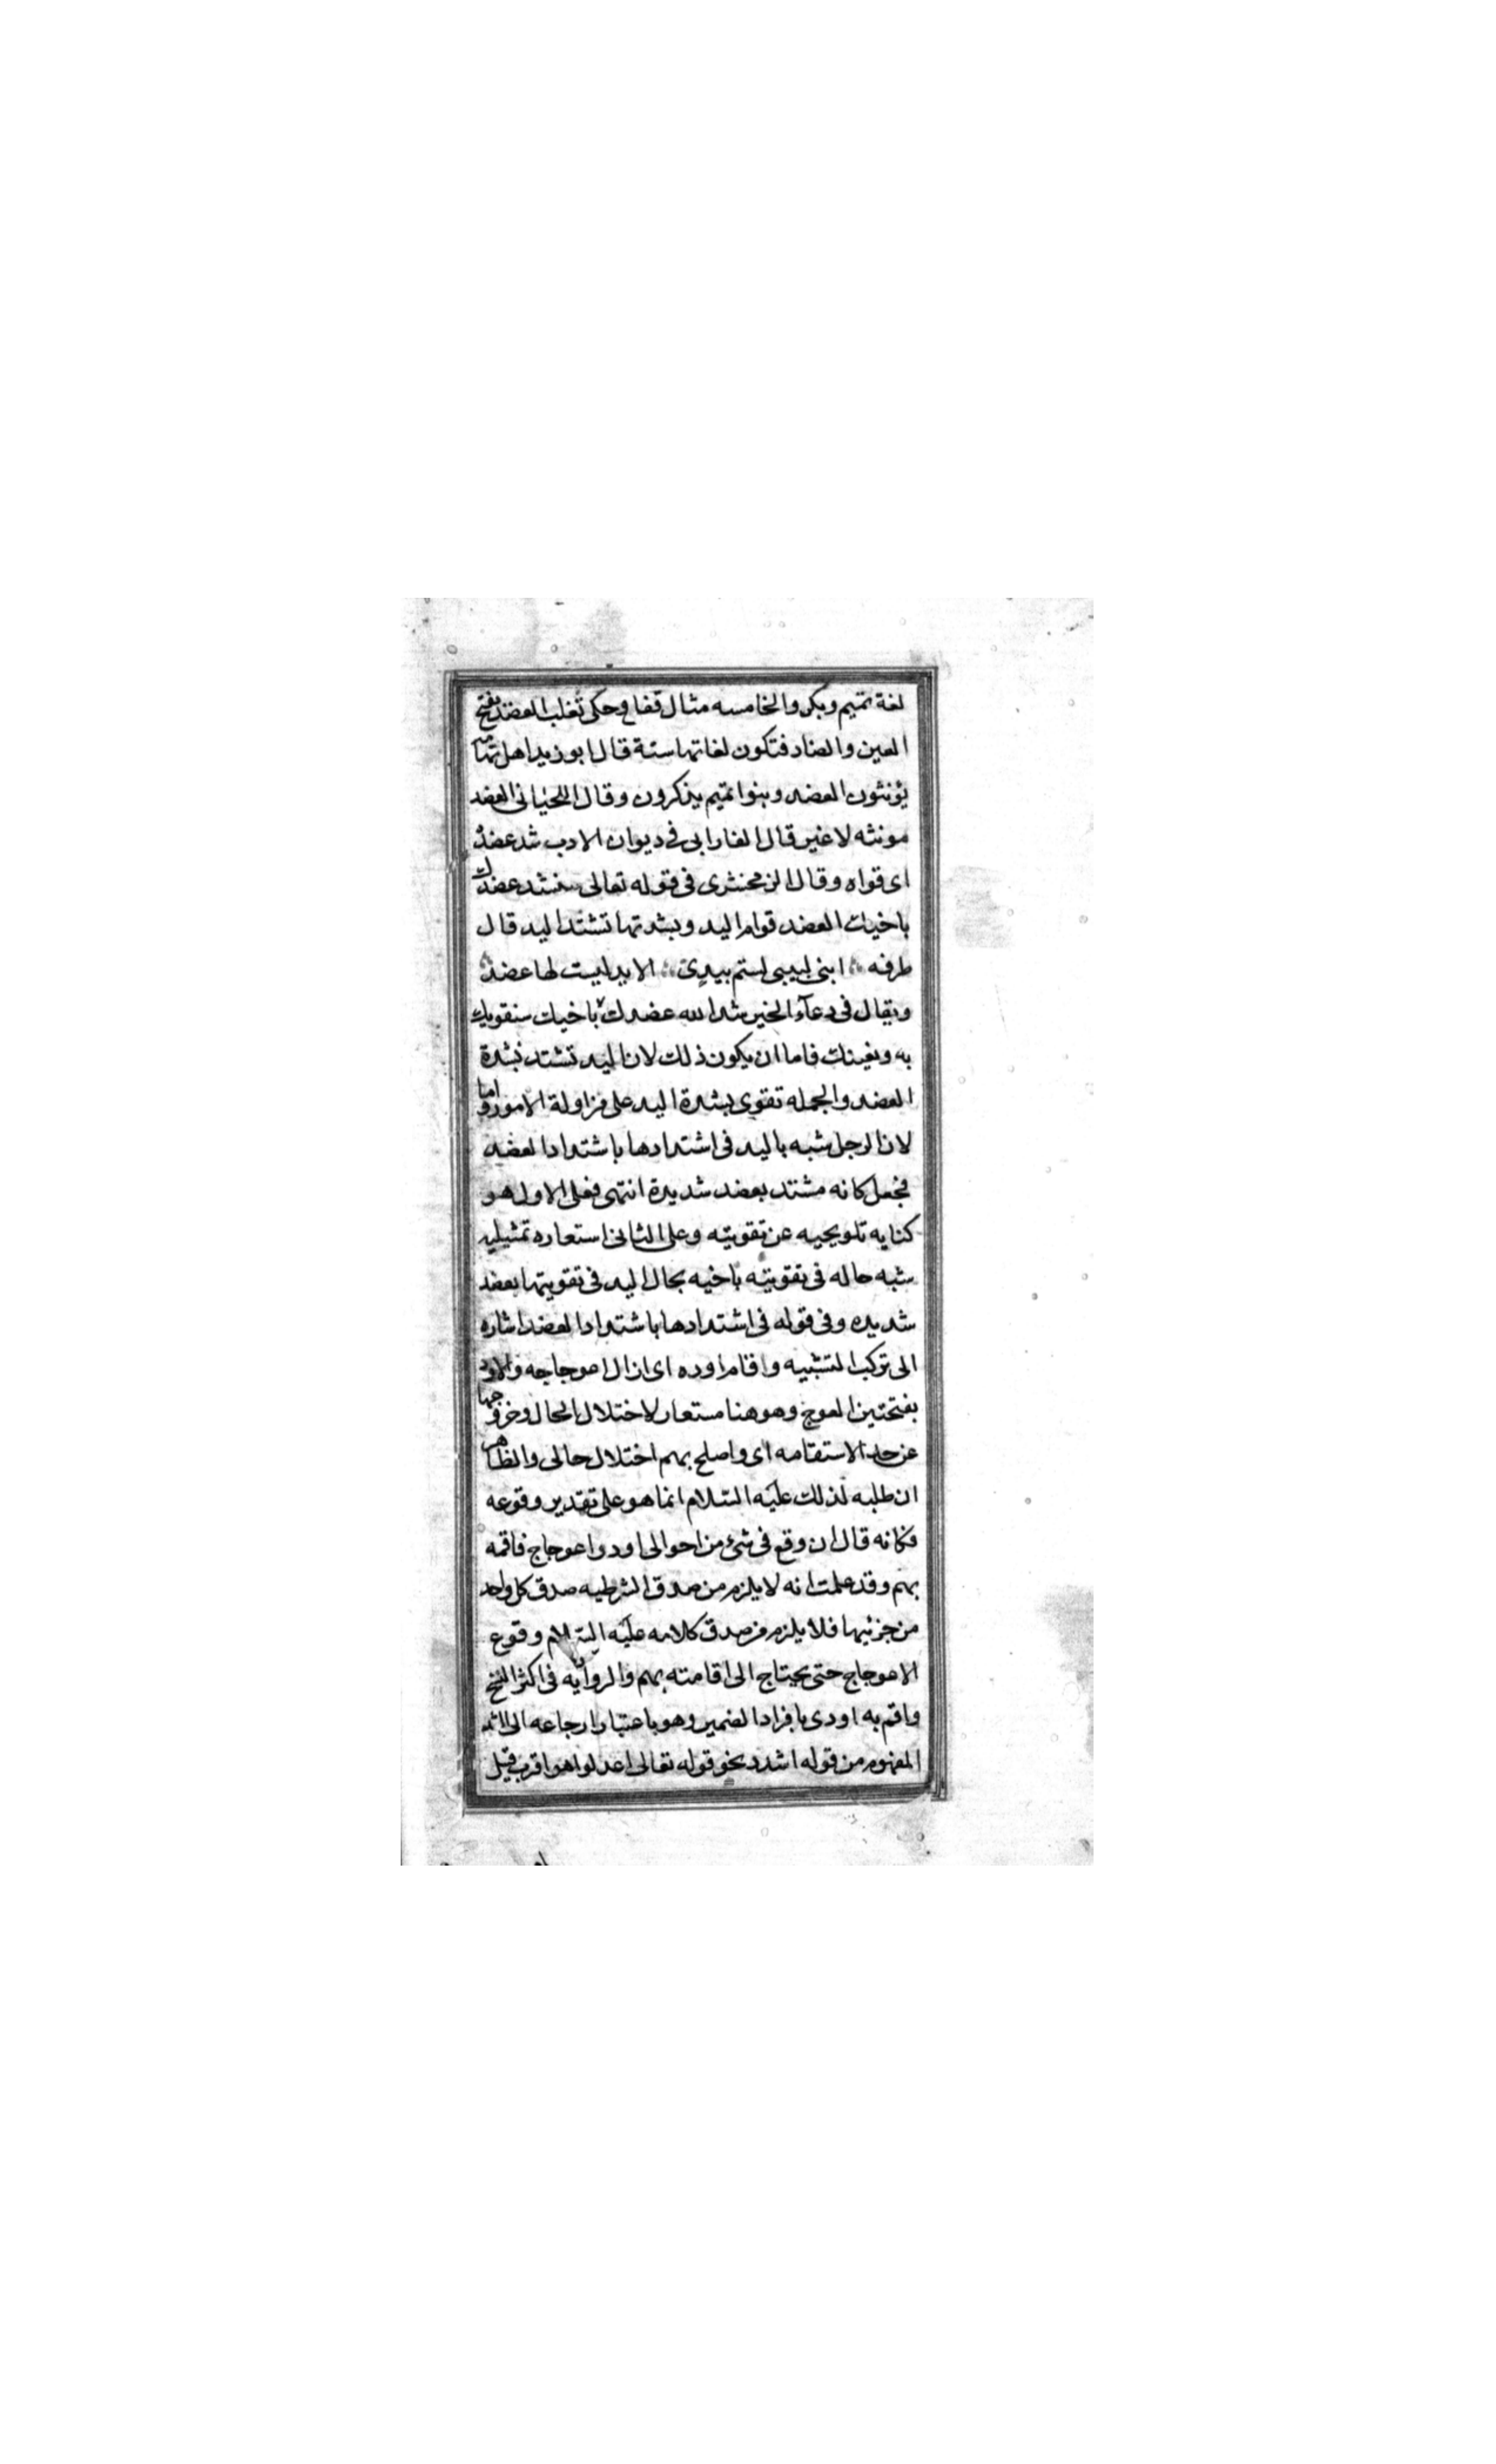 لغة تميم وبكر والخامسه مثال قفاع وحكى ثعلب العضد بفتح
العين والضاد فتكون لغاتها ستة قال ابو زيد اهل تهامة
يؤنثون العضد وبنوا تميم يذكرون وقال اللحياني العضد
مونثه لا غير قال الفارابي في ديوان الادب شد عضده
اى قواه وقال الزمخشرى فى قوله تعالى سنشد عضدك
باخيك العضد قوام اليد وبشدتها تشتد اليد قال
طرفه ابنى لبينى لستم بيد الا يدا ليست لها عضد
ويقال فى دعآء الخير شد الله عضدك باخيك سنقويك
به ونعينك فاما ان يكون ذلك لان اليد تشتد بشدة
العضد والجمله تقوى بشدة اليد على مزاولة الامور واما
لان الرجل شبه باليد فى اشتدادها باشتداد العضد
فجعل كانه مشتد بعضد شديدة انتهى فعلى الاول هو
كنايه تلويحيه عن تقويته وعلى الثانى استعاره تمثيليه
شبه حاله فى تقويته باخيه بحال اليد فى تقويتها بعضد
شديده وفى قوله فى اشتدادها باشتداد العضد اشاره
الى تركب التشبيه واقام اوده اى ازال اعوجاجه والاود
بفتحتين العوج وهو هنا مستعار لاختلال الحال وخروجها
عن حد الاستقامه اى واصلح بهم اختلال حالى والظاهر
ان طلبه لذلك عليه السلام انما هو على تقدير وقوعه
فكانه قال ان وقع فى شئ من احوالى اود واعوجاج فاقمه
بهم وقد علمت انه لا يلزم من صدق الشرطيه صدق كل واحد
من جزئيها فلا يلزم من صدق كلامه عليه السلام وقوع
الاعوجاج حتى يحتاج الى اقامته بهم والروايه فى اكثر النسخ
واقم به اودى بافراد الضمير وهو باعتبار ارجاعه الى
المفهوم من قوله اشدد نحو قوله تعالى اعدلوا هو اقرب قيل